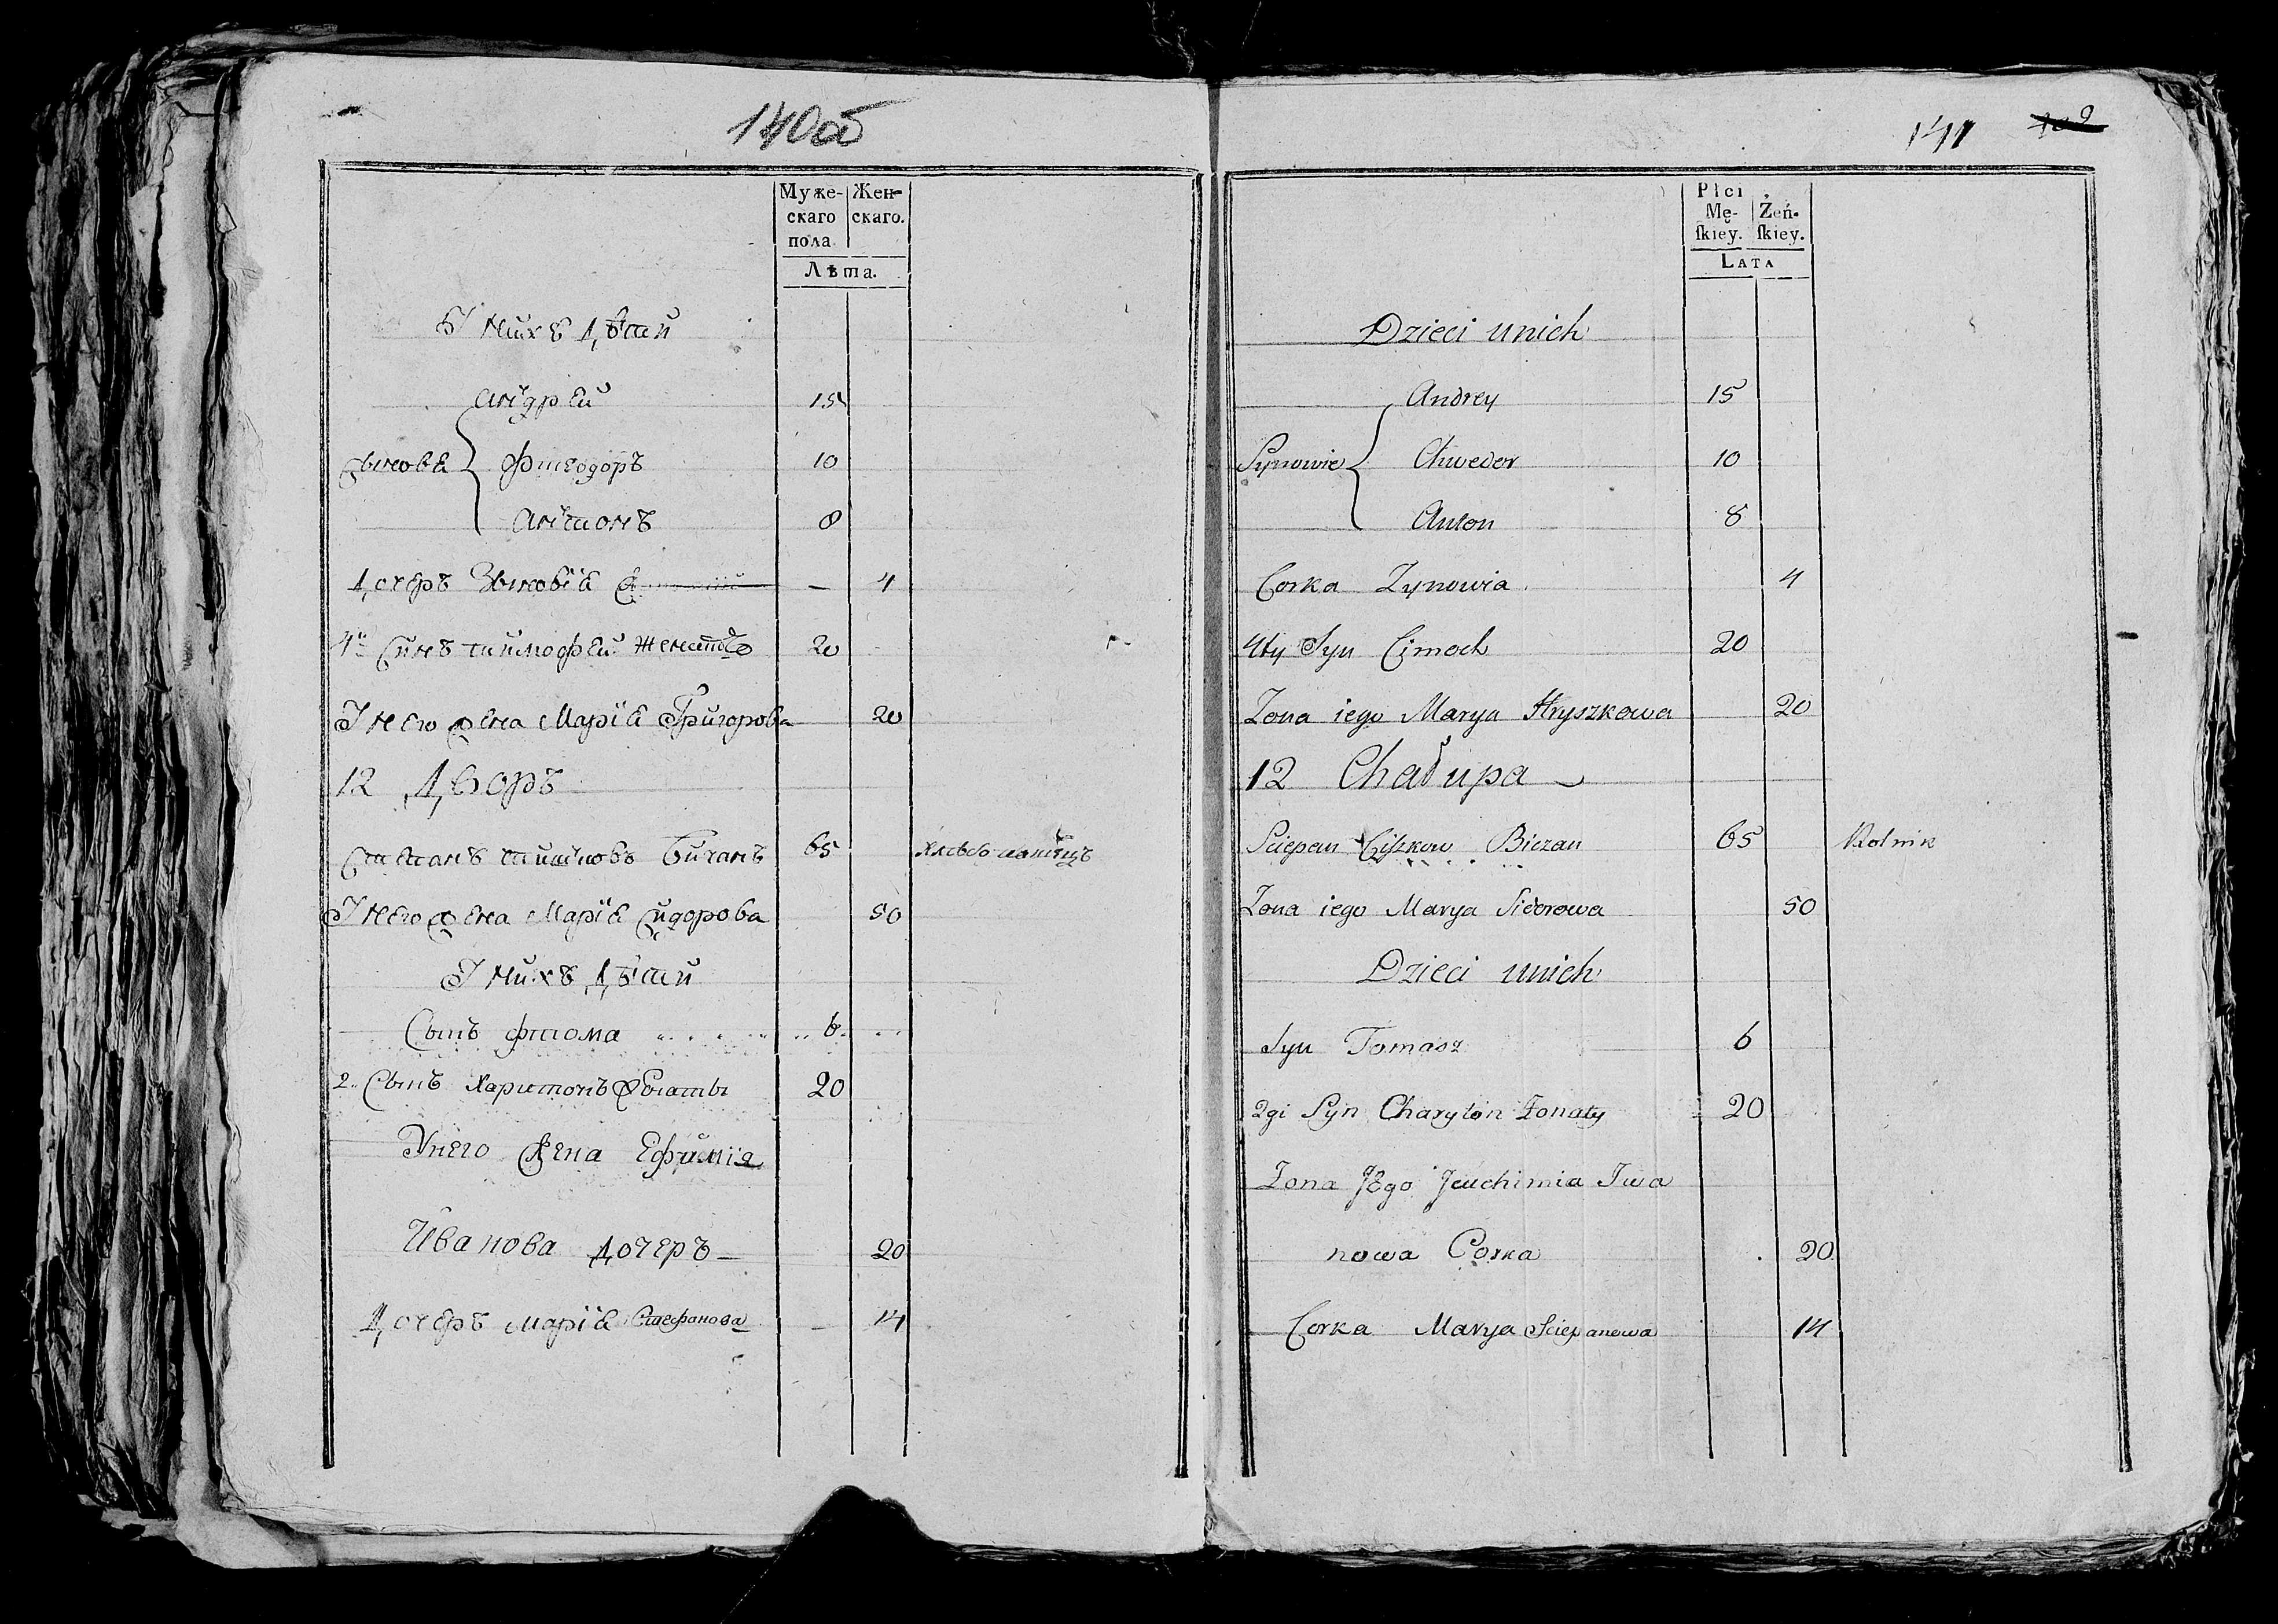 140об
Муже- Жен-
скаго скаго.
пола
Лѣта.
У нихъ дѣтй
Андрей 15
Сынове Фтеодоръ 10
Антонъ 8
дочеръ Зыновія — 4
4й Сынъ тимофей женатъ 20
У него жена Марія Григорова 20
12 Дворъ
Степанъ тишковъ Бичанъ 65
У него жена Марія Сидорова 50
У нихъ дѣтй
Сынъ фтома 6
2. Сынъ Харитонъ женаты 20
У него жена Ефимія
Иванова дочеръ — 20
дочеръ марія Стефанова — 14
141 109
Płci
Mę- Żeń-
ſkiey. ſkiey.
LATA
Dzieci unich
Andrey 15
Synowie Chwedor 10
Anton 8
Corka Zynowia 4
4ty Syn Cimoch 20
Zona iego Marya Hryszkowa 20
12 Chałupa
Sciepan Ciszkow Biczan 65 Rolnik
Zona iego Marya Siderowa 50
Dzieci unich
Syn Tomasz 6
2gi Syn Charyton Zonaty 20
Zona Jego Jeuchimia Iwa
nowa Corka 20
Corka Marya Sciepanowa 14